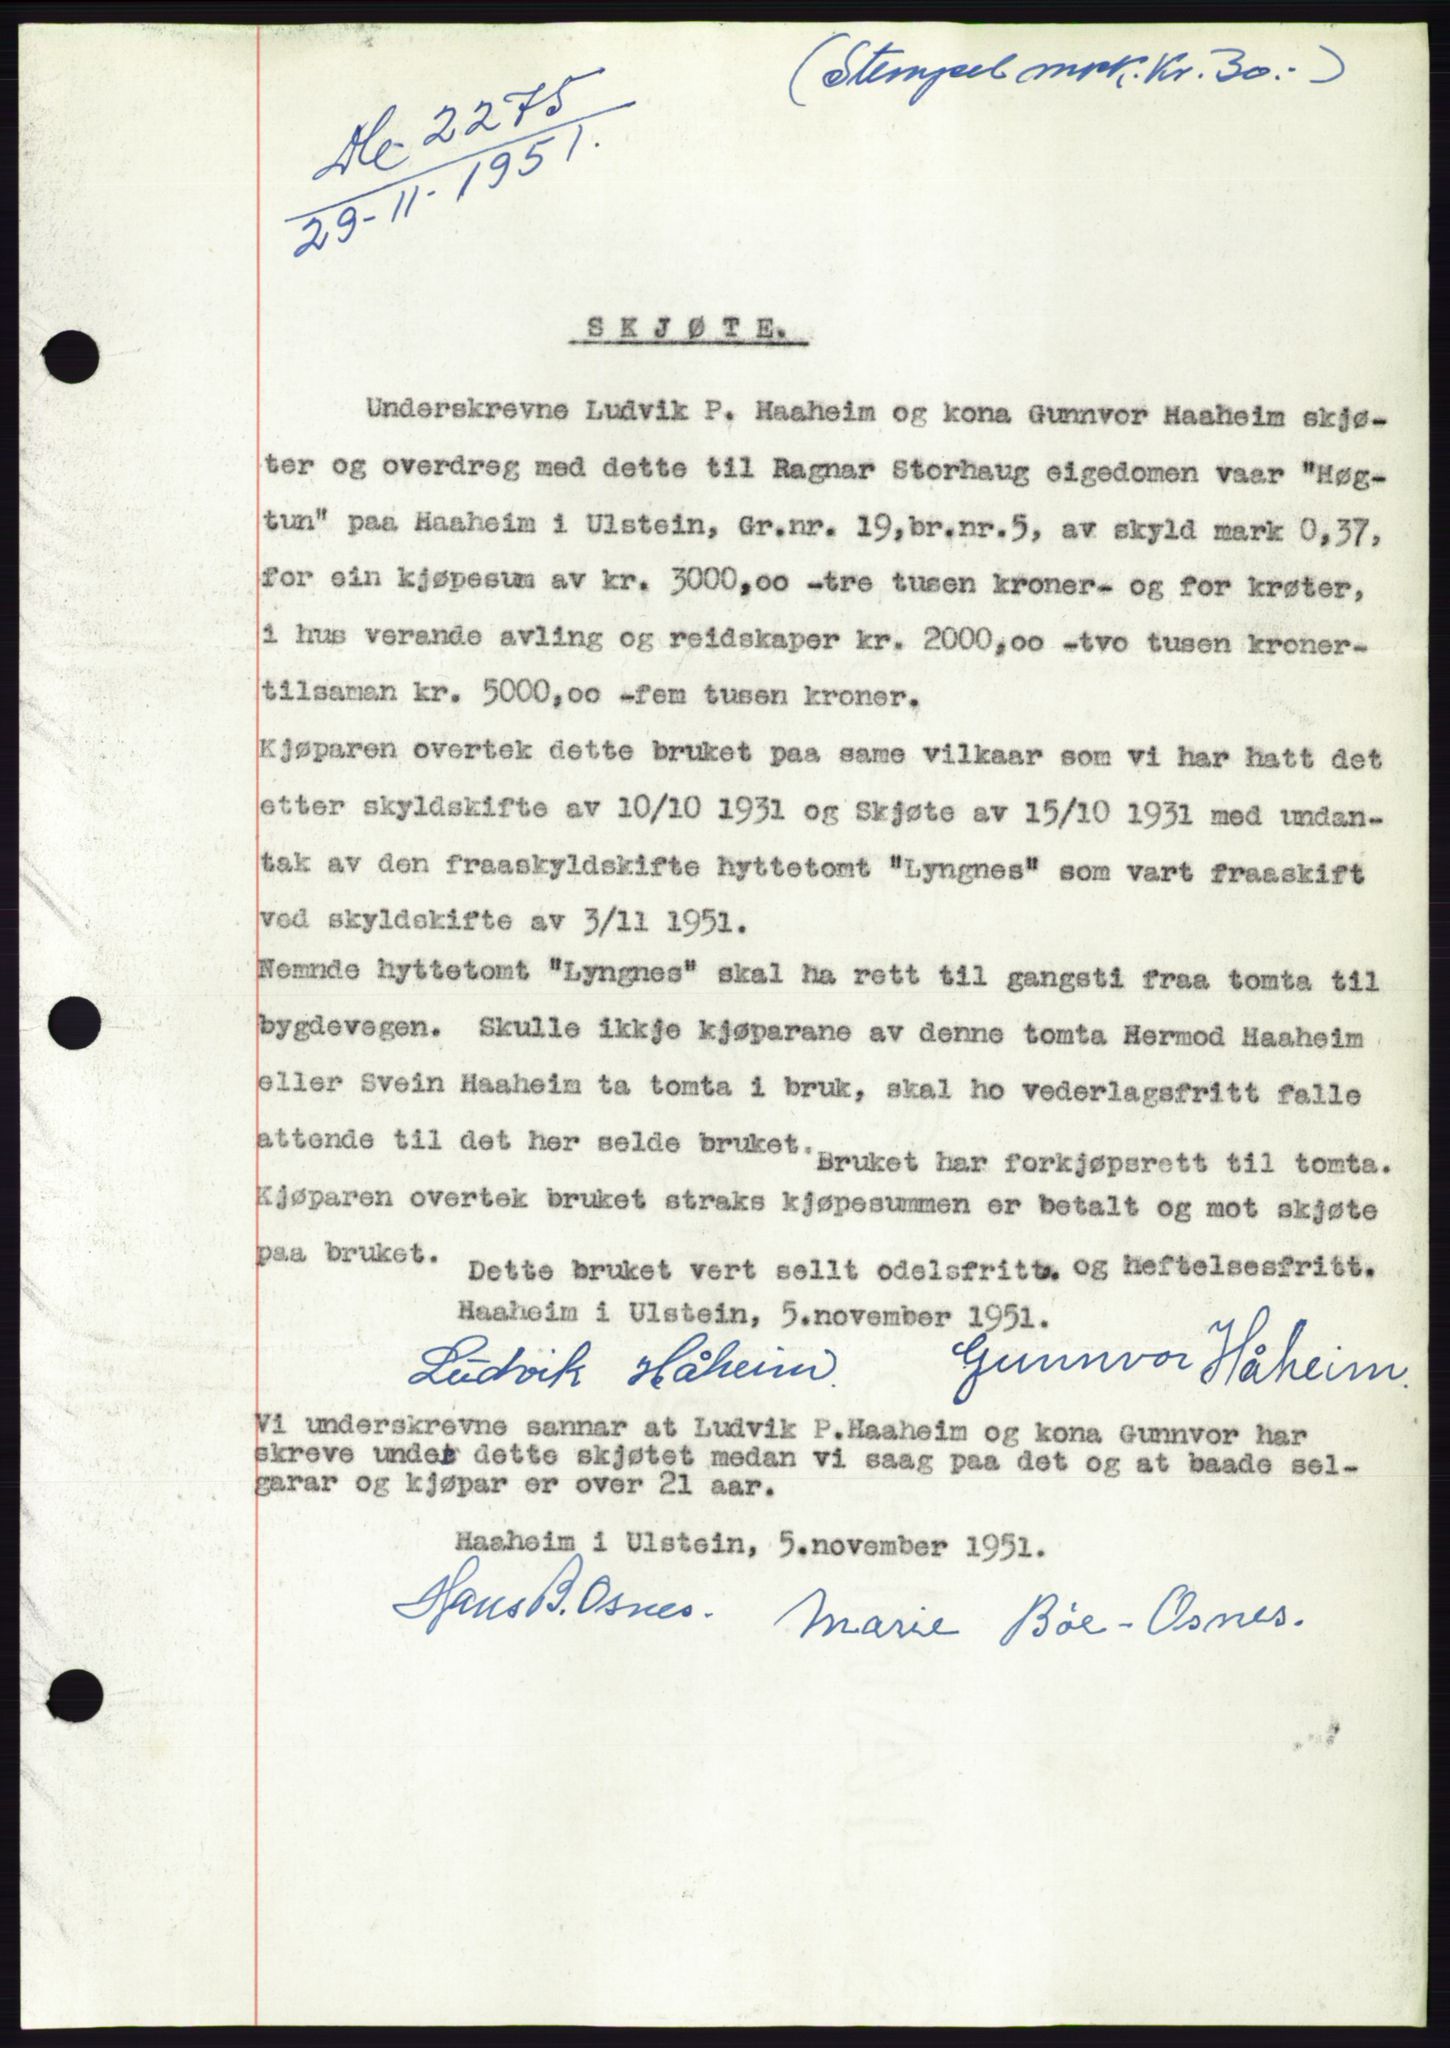 (Stempel mrk. Kr. 30.-)
2275
29-11-1951.
SKJØTE.
Underskrevne Ludvik P. Haaheim og kona Gunnvor Haaheim skjø-
ter og overdreg med dette til Ragnar Storhaug eigedomen vaar "Høg-
tun" paa Haaheim i Ulstein, Gr.nr. 19,br.nr.5, av skyld mark 0,37,
for ein kjøpesum av kr. 3000,oo -tre tusen kroner- og for krøter,
i hus verande avling og reidskaper kr. 2000,oo -tvo tusen kroner-
tilsaman kr. 5000,oo -fem tusen kroner.
Kjøparen overtek dette bruket paa same vilkaar som vi har hatt det
etter skyldskifte av 10/10 1931 og Skjøte av 15/10 1931 med undan-
tak av den fraaskyldskifte hyttetomt "Lyngnes" som vart fraaskift
ved skyldskifte av 3/11 1951.
Nemnde hyttetomt "Lyngnes" skal ha rett til gangsti fraa tomta til
bygdevegen. Skulle ikkje kjøparane av denne tomta Hermod Haaheim
eller Svein Haaheim ta tomta i bruk, skal ho vederlagsfritt falle
attende til det her selde bruket. Bruket har forkjøpsrett til tomta.
Kjøparen overtek bruket straks kjøpesummen er betalt og mot skjøte
paa bruket. Dette bruket vert sellt odelsfritt. og heftelsesfritt.
Haaheim i Ulstein, 5.november 1951.
Ludvik Håheim. Gunnvor Håheim.
Vi underskrevne sannar at Ludvik P.Haaheim og kona Gunnvor har
skreve under dette skjøtet medan vi saag paa det og at baade sel-
garar og kjøpar er over 21 aar.
Haaheim i Ulstein, 5.november 1951.
Hans B. Osnes. Marie Böe-Osnes.